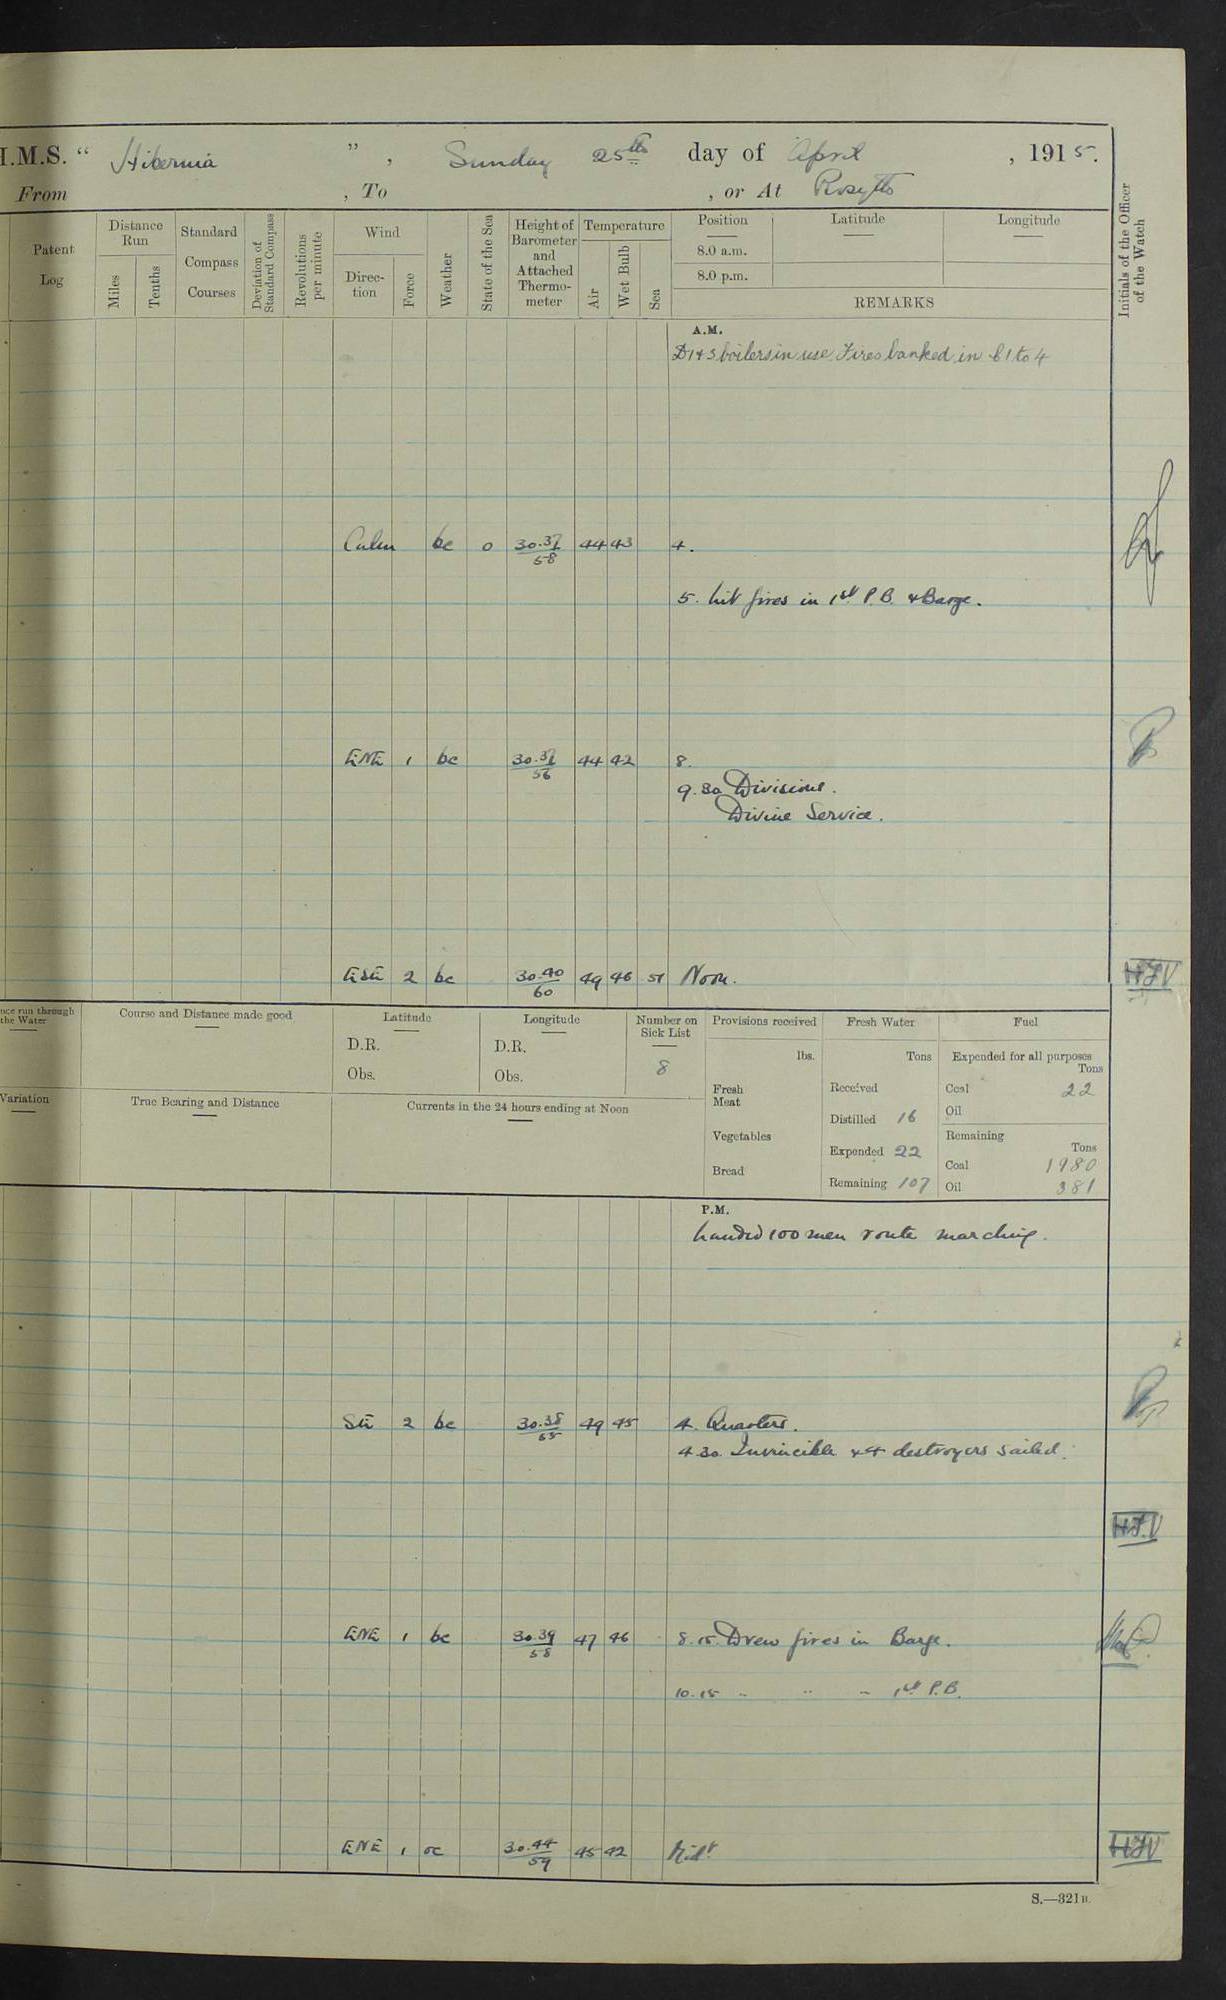 H.M.S. " Hibernia ", Sunday 25th day of April, 1915.
From , To , or At Rosyth
Patent Log
Distance Run
Miles
Tenths
Standard Compass Courses
Deviation of Standard Compass
Revolutions per minute
Wind
Direction
Force
Weather
State of the Sea
Height of Barometer and Attached Thermometer
Temperature
Air
Wet Bulb
Sea
Position
Latitude
Longitude
8.0 a.m.
8.0 p.m.
REMARKS
Initials of the Officer of the Watch
A.M.
D1 & 3 boilers in use. Fires banked in B1 to 4
Calm bc 0 30.37/58 44 43 4.
5. Lit fires in 1st P.B. & Barge.
ENE 1 bc 30.37/56 44 42 8.
9.30 Divisions.
Divine Service.
ESE 2 bc 30.40/60 49 46 51 Noon. HJV
nce run through the Water
Course and Distance made good
Latitude
D.R.
Obs.
Longitude
D.R.
Obs.
Number on Sick List
8
Provisions received
lbs.
Fresh Meat
Vegetables
Bread
Fresh Water
Tons
Received
Distilled 16
Expended 22
Remaining 107
Fuel
Expended for all purposes
Tons
Coal 22
Oil
Remaining
Tons
Coal 1980
Oil 381
Variation
True Bearing and Distance
Currents in the 24 hours ending at Noon
P.M.
Landed 100 men route marching.
SE 2 bc 30.38/55 49 45 4. Quarters.
4.30 Invincible & 4 destroyers sailed.
HJV
ENE 1 bc 30.39/58 47 46 8.15 Drew fires in Barge.
10.15 " " " 1st P.B.
ENE 1 oc 30.44/59 45 42 Midt HJV
S.—321B.